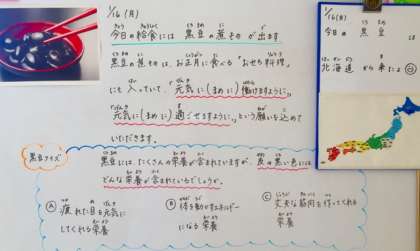 1/16(月)
今日の給食には 黒豆の煮もの が 出ます。
黒豆の煮物は、お正月に食べる "おせち料理"
にも 入っていて、「元気に(まめに)働けますように」
「元気に(まめに)過ごせますように」という願いを込めて
いただきます。
黒豆クイズ
黒豆には、たくさんの栄養が含まれていますが、皮の黒い色には
どんな栄養が含まれているでしょうか。
Ⓐ 疲れた目を元気に
してくれる栄養
Ⓑ 体を動かすエネルギー
になる 栄養
Ⓒ 丈夫な筋肉を作ってくれる
栄養
1/16(月)
今日の 黒豆 は
北海道 から 来たよ